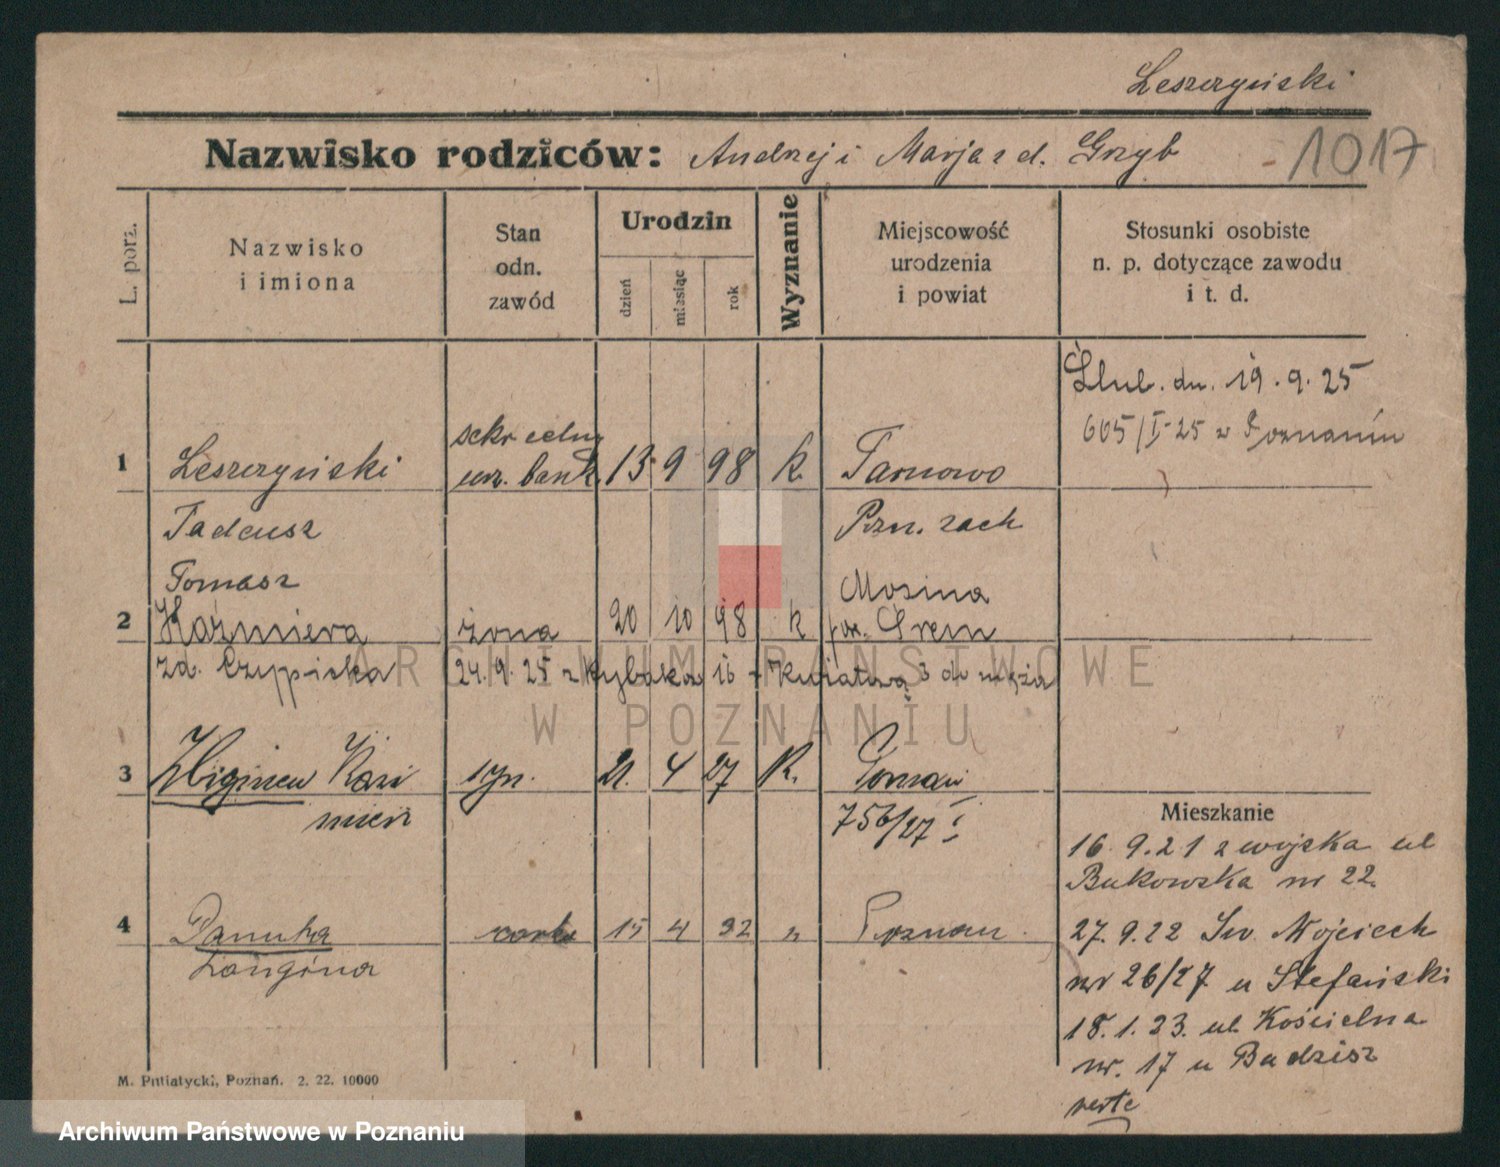 Leszczyński
Nazwisko rodziców: Andrzej i Marja z d. Grzyb 1017
L. porz.
Nazwisko
i imiona
Stan
odn.
zawód
Urodzin
dzień
miesiąc
rok
Wyznanie
Miejscowość
urodzenia
i powiat
Stosunki osobiste
n. p. dotyczące zawodu
i t. d.
Ślub. dn. 19.9.25
605/I-25 w Poznaniu
sekr
1 Leszczyński urz. bank. 13 9 98 k. Tarnowo
Tadeusz Pozn. zach
Tomasz Mosina
2 Kaźmiera żona 20 10 98 k pow. Śrem
zd. Czypicka 24.9.25 z Rybaka 16 Kwiatową 3 do męża
3 Zbigniew Kazi syn. 21. 4 27 K. Poznań
mierz 756/27 I
Mieszkanie
16.9.21 z wojska ul
Bukowska nr 22.
4 Danuta córka 15 4 32 " Poznań
Longina
27.9.22 Św Wojciech
nr 26/27 u Stefański
18.1.23. ul Kościelna
nr. 17 u Budzisz
verte
M. Putiatycki, Poznań. 2. 22. 10000
ARCHIWUM PAŃSTWOWE
W POZNANIU
Archiwum Państwowe w Poznaniu